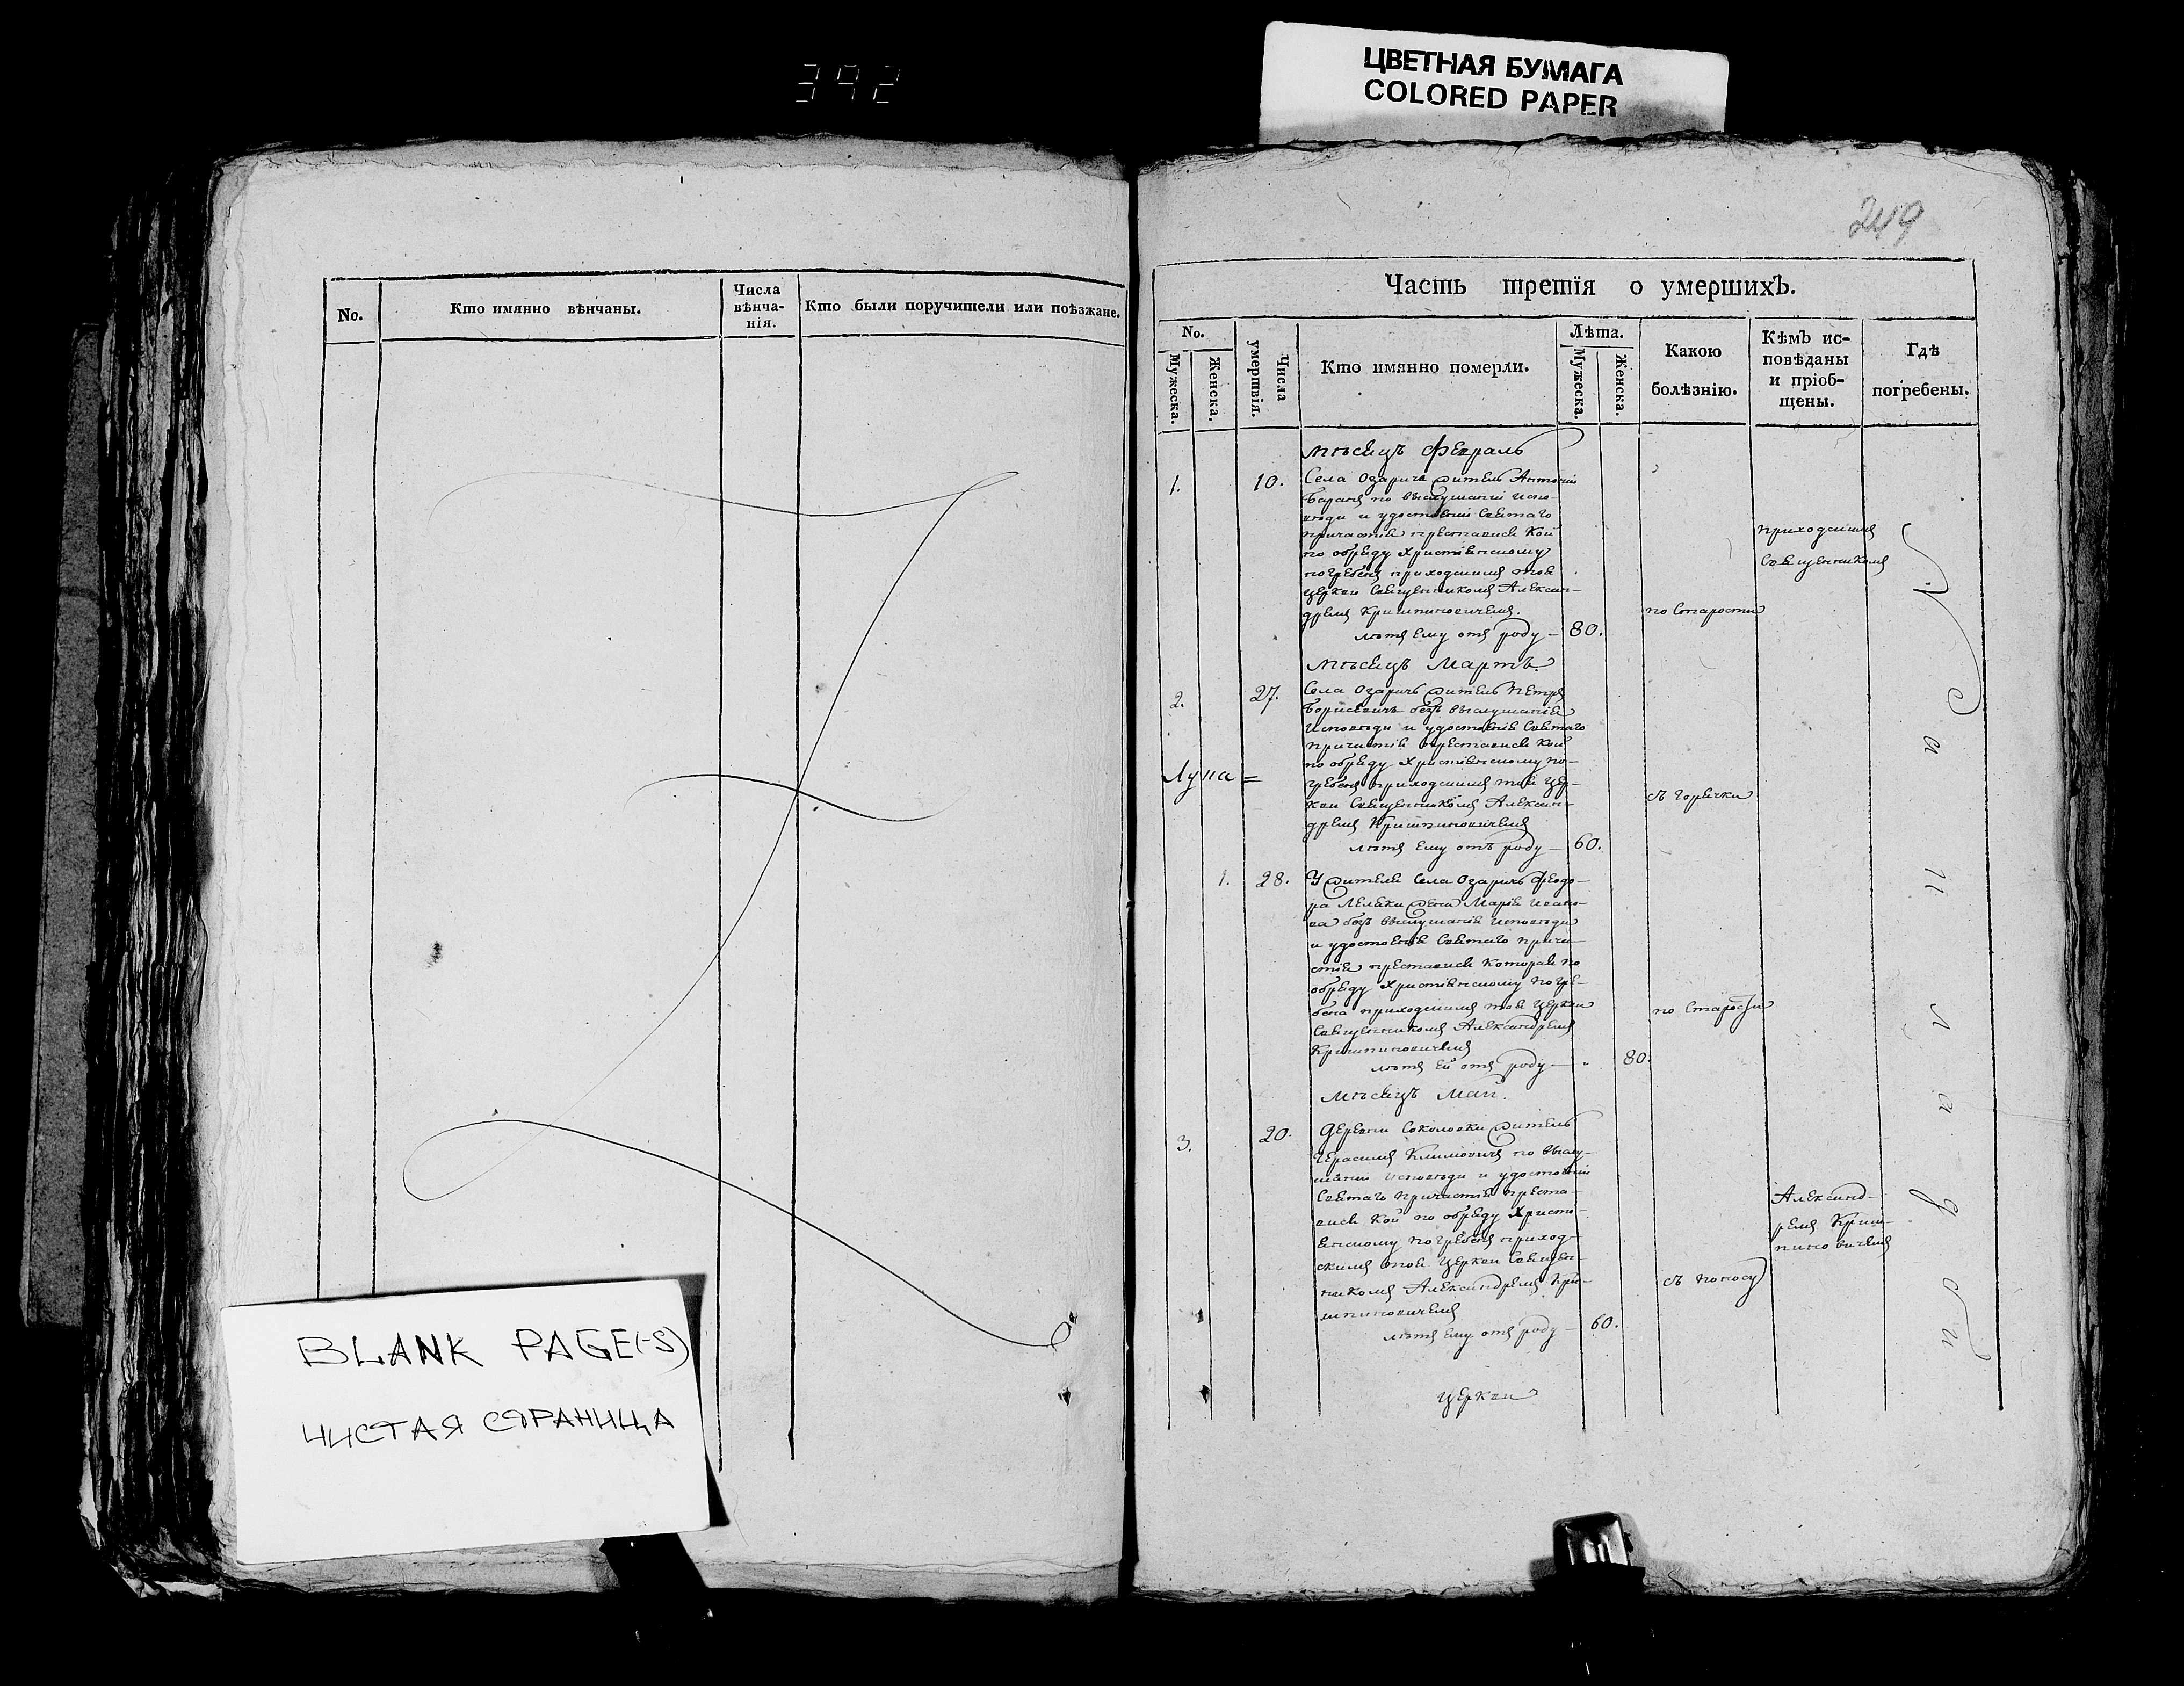 392
ЦВЕТНАЯ БУМАГА
COLORED PAPER
No.
Кто имянно вѣнчаны.
Числа
вѣнча-
нія.
Кто были поручители или поѣзжане.
BLANK PAGE(-S)
ЧИСТАЯ СТРАНИЦА
249
Часть третія о умершихЪ.
No.
Мужеска.
Женска.
Числа
умертвія.
Кто имянно померли.
Лѣта.
Мужеска.
Женска.
Какою
болѣзнію.
КѣмЪ ис-
повѣданы
и пріоб-
щены.
Гдѣ
погребены.
мѣсяцъ Февраль
1. 10. Села Озаричъ житель Антоній
по выслушаніи испо-
вѣди и удостоеніи Святаго
причастія преставися кой
по обряду Христіянскому
погребенъ приходскимъ тоя
церкви Священникомъ Алексан-
дремъ Кришпиновичемъ.
лѣтъ ему отъ роду — 80.
по старости
приходскимъ
Священникомъ
мѣсяцъ Мартъ.
2. 27. Села Озаричъ житель Петръ
Борисевичъ безъ выслушанія
исповѣди и удостоенія Святаго
причастія преставися кой
по обряду Христіянскому по-
гребенъ приходскимъ тоя цер-
кви Священникомъ Алексан-
дремъ Кришпиновичемъ
лѣтъ ему отъ роду — 60.
съ горячки
1. 28. У жителя села Озаричъ Феодо-
ра Лелеки жена Марія Ивано-
ва безъ выслушанія исповѣди
и удостоенія Святаго прича-
стія преставися которая по
обряду Христіянскому погре-
бена приходскимъ тоя церкви
Священникомъ Александремъ
Кришпиновичемъ
лѣтъ ей отъ роду — 80.
по старости
мѣсяцъ Май.
3. 20. Деревни Соколовки житель
Герасимъ Климовичъ по выслу-
шаніи исповѣди и удостоеніи
Святаго причастія преста-
вися кой по обряду Христі-
янскому погребенъ приход-
скимъ тоя церкви Священ-
никомъ Александремъ Кри-
шпиновичемъ
лѣтъ ему отъ роду — 60.
съ поносу
Александ-
ремъ Криш-
пиновичемъ
церкви